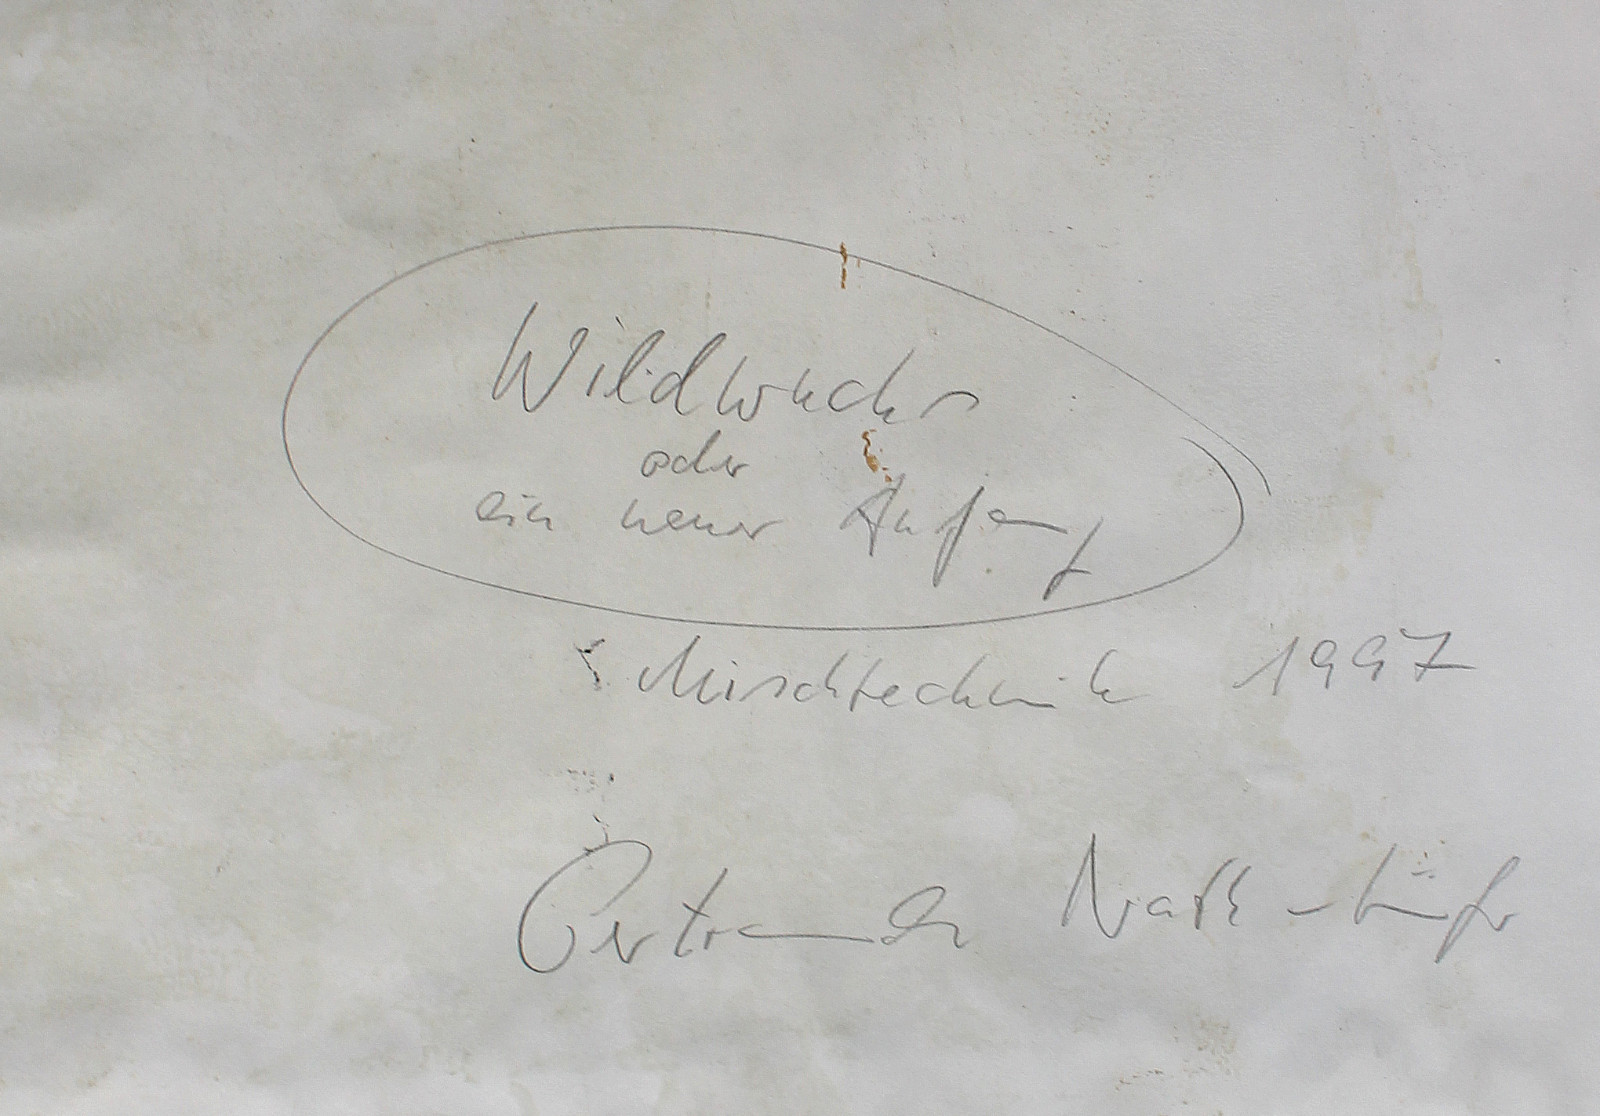 Wildwuchs
oder
ein neuer Anfang
Mischtechnik 1997
Gertraude